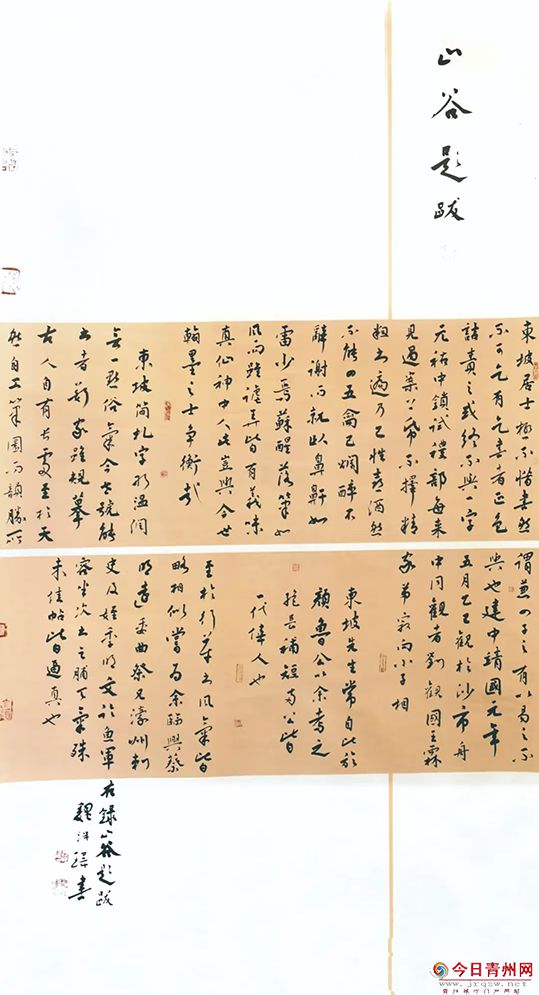 山谷题跋
東坡居士極不惜书然
不可乞有乞书者正色
詰責之或终不與一字
元祐中鎖試禮部每来
見過案上帋不擇精
粗书遍乃已性喜酒然
不能四五龠已爛醉不
辭谢而就卧鼻鼾如
雷少焉蘇醒落筆如
风雨雖謔弄皆有義味
真仙神中人此豈與今世
翰墨之士争衡哉
東坡简札字形温潤
無一點俗氣今世號能
书者數家雖規摹
古人自有長處至於天
然自工筆圓而韻勝所
謂兼四子之有以易之不
與也建中靖國元年
五月乙巳觀於沙市舟
中同觀者劉觀國王霖
家弟叔向小子相
東坡先生常自比於
顏魯公以余考之
絶長補短兩公皆
一代偉人也
至於行草正风氣皆
略相似嘗为余臨與蔡
明遠委曲祭兄濠州刺
史及姪季明文論魚軍
容坐次书乞脯天氣殊
未佳帖皆逼真也
右録山谷题跋
今日青州网
www.jrqzw.net